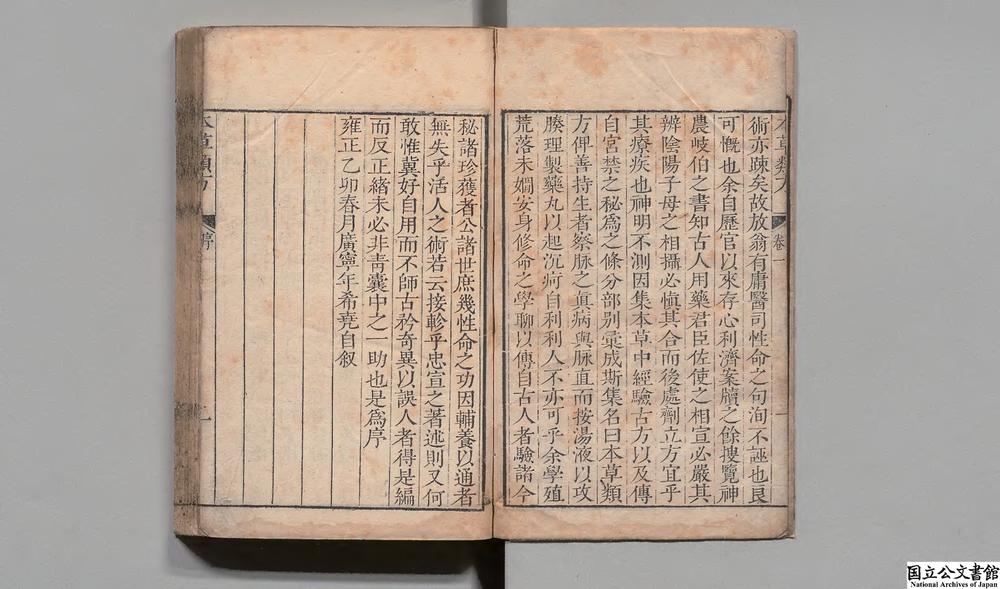 本草類方
卷一
一
術亦疎矣故放翁有庸醫司性命之句洵不誣也良
可慨也余自歷官以來存心利濟案牘之餘搜覽神
農岐伯之書知古人用藥君臣佐使之相宣必嚴其
辨陰陽子母之相攝必愼其合而後處劑立方宜乎
其療疾也神明不測因集本草中經驗古方以及傳
自宮禁之秘爲之條分部别彙成斯集名曰本草類
方俾善持生者祭脉之眞病與脉直而按湯液以攻
腠理製藥丸以起沉疴自利利人不亦可乎余學殖
荒落未嫺安身修命之學聊以傳自古人者驗諸今
秘諸珍獲者公諸世庶幾性命之功因輔養以通者
無失乎活人之術若云接軫乎忠宣之著述則又何
敢惟冀好自用而不師古矜奇異以誤人者得是編
而反正緒未必非靑囊中之一助也是爲序
雍正乙卯春月廣寧年希堯自叙
本草類方
序
二
国立公文書館
National Archives of Japan